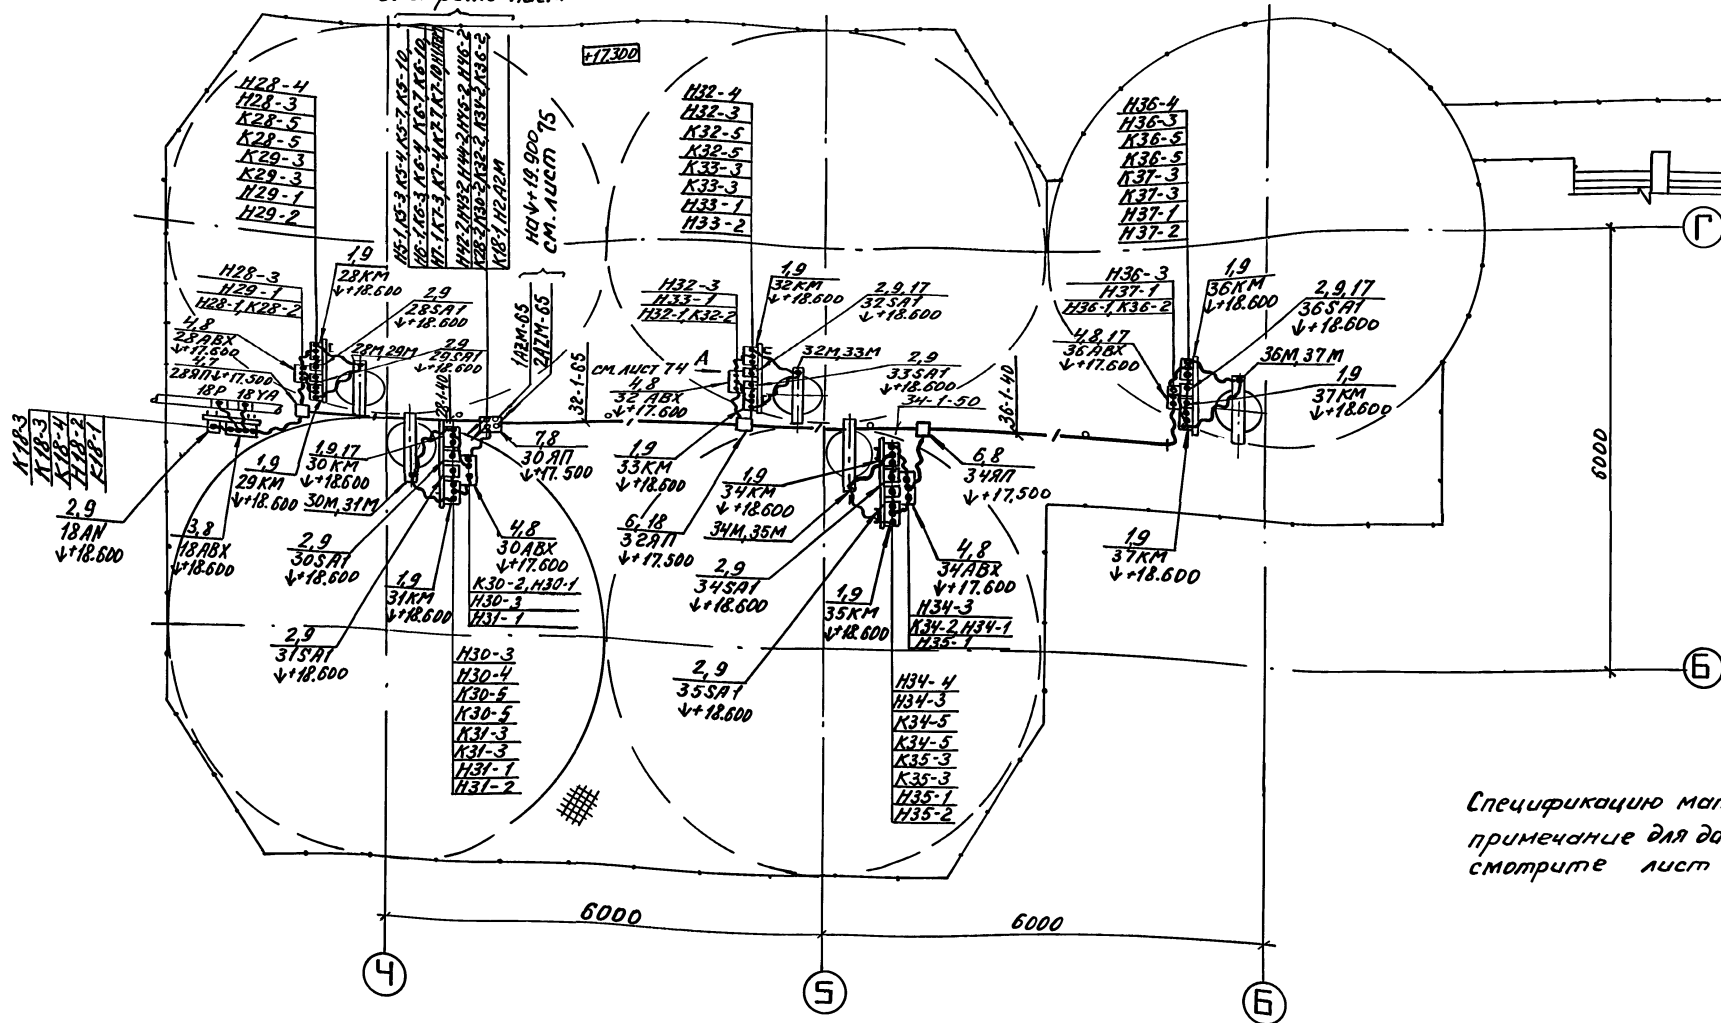 +17.300
Н28-4
Н28-3
К28-5
К28-5
К29-3
К29-3
Н29-1
Н29-2
Н5-1, К5-3 К5-4 К5-7, К5-10,
Н6-1, К6-3 К6-4 К6-7 К6-10,
Н42-2, Н43-2, Н44-2, Н45-2, Н46-2
К28-2, К30-2, К32-2, К34-2, К36-2,
К18-1, Н2А2М
на ↓+19.900
см. лист 75
Н32-4
Н32-3
К32-5
К32-5
К33-3
К33-3
Н33-1
Н33-2
Н36-4
Н36-3
К36-5
К36-5
К37-3
К37-3
Н37-1
Н37-2
Г
1,9
28КМ
↓+18.600
Н28-3
Н29-1
Н28-1, К28-2
2,9
28SA1
↓+18.600
4,8
28АВХ
↓+17.600
4,7
28ЯП ↓+17.500
18Р 18YA
28М, 29М
2,9
29SA1
↓+18.600
1А2М-65
2А2М-65
32-1-65
Н32-3
Н33-1
Н32-1, К32-2
1,9
32КМ
↓+18.600
2,9,17
32SA1
↓+18.600
см. лист 74
А
4,8
32АВХ
↓+17.600
32М, 33М
2,9
33SA1
↓+18.600
34-1-50
36-1-40
Н36-3
Н37-1
Н36-1, К36-2
1,9
36КМ
↓+18.600
2,9,17
36SA1
↓+18.600
4,8,17
36АВХ
↓+17.600
36М, 37М
1,9
37КМ
↓+18.600
6000
К18-3
К18-3
К18-4
Н18-2
К18-1
2,9
18AN
↓+18.600
3,8
18АВХ
↓+18.600
1,9
29КМ
↓+18.600
1,9,17
30КМ
↓+18.600
30М, 31М
2,9
30SA1
↓+18.600
7,8
30ЯП
↓+17.500
4,8
30АВХ
↓+17.600
1,9
31КМ
↓+18.600
К30-2, Н30-1
Н30-3
Н31-1
2,9
31SA1
↓+18.600
Н30-3
Н30-4
К30-5
К30-5
К31-3
К31-3
Н31-1
Н31-2
1,9
33КМ
↓+18.600
6,18
32ЯП
↓+17.500
1,9
34КМ
↓+18.600
34М, 35М
2,9
34SA1
↓+18.600
6,8
34ЯП
↓+17.500
4,8
34АВХ
↓+17.600
1,9
35КМ
↓+18.600
Н34-3
К34-2, Н34-1
Н35-1
2,9
35SA1
↓+18.600
Н34-4
Н34-3
К34-5
К34-5
К35-3
К35-3
Н35-1
Н35-2
1,9
37КМ
↓+18.600
Б
Спецификацию мат
примечание для да
смотрите лист
6000
6000
4
5
6